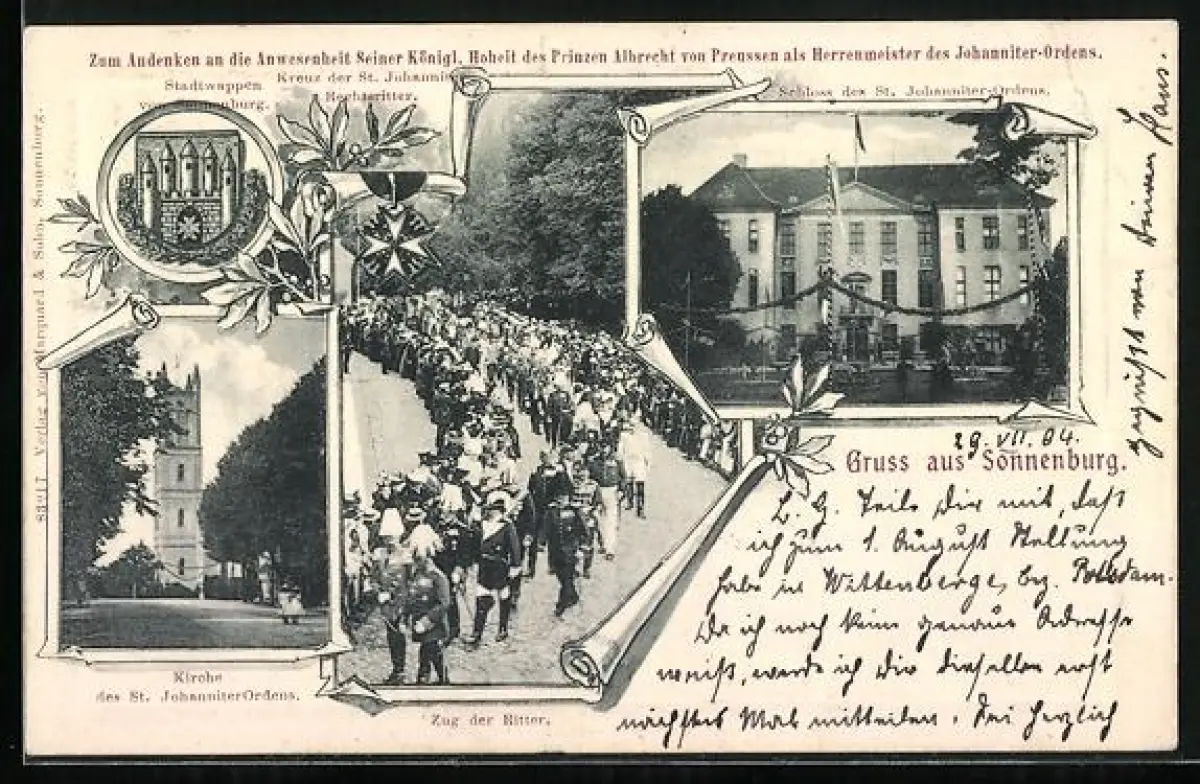 Zum Andenken an die Anwesenheit Seiner Königl. Hoheit des Prinzen Albrecht von Preussen als Herrenmeister des Johanniter-Ordens.
Stadtwappen
von Sonnenburg.
Kreuz der St. Johanni
Rechtsritter.
Schloss des St. Johanniter-Ordens.
83917. Verlag von & Sohn, Sonnenburg.
Kirche
des St. JohanniterOrdens.
Zug der Ritter.
29. VII. 04.
Gruss aus Sonnenburg.
L. G. Teile Dir mit, daß
ich zum 1. August Stellung
habe in Wittenberge, bez. Potsdam.
Da ich noch keine genaue Adresse
weiß, werde ich Dir dieselbe erst
nächstes Mal mitteilen. Sei herzlich
gegrüßt von Deinem Hans.